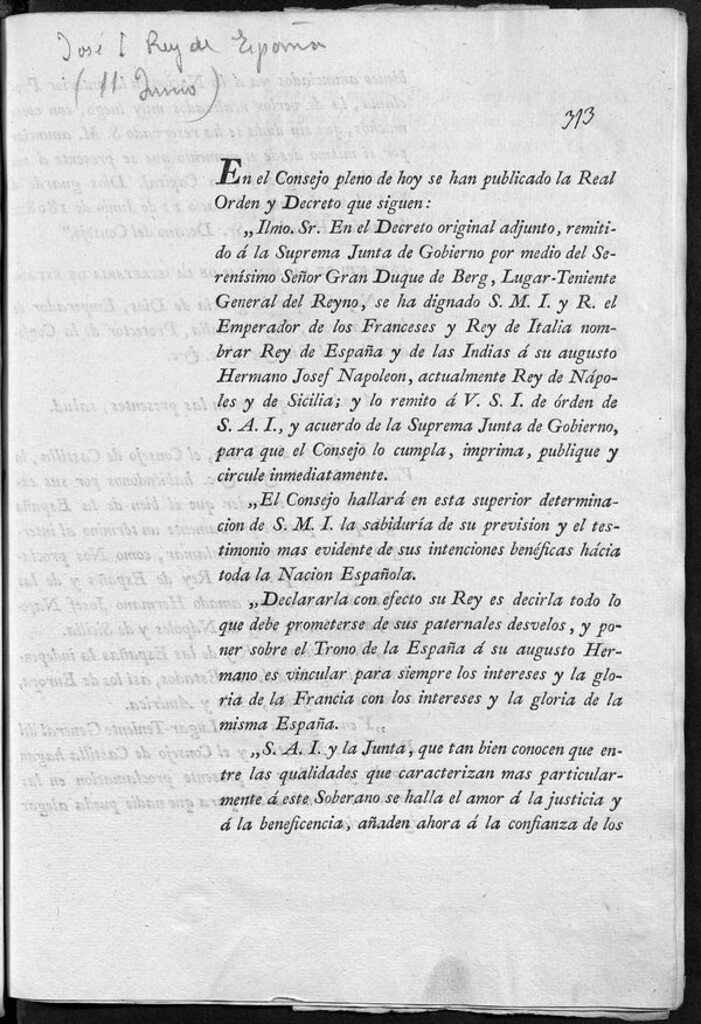 José I Rey de España
(11 Junio)
313
En el Consejo pleno de hoy se han publicado la Real
Orden y Decreto que siguen:
„Ilmo. Sr. En el Decreto original adjunto, remiti-
do á la Suprema Junta de Gobierno por medio del Se-
renísimo Señor Gran Duque de Berg, Lugar-Teniente
General del Reyno, se ha dignado S. M. I. y R. el
Emperador de los Franceses y Rey de Italia nom-
brar Rey de España y de las Indias á su augusto
Hermano Josef Napoleon, actualmente Rey de Nápo-
les y de Sicilia; y lo remito á V. S. I. de órden de
S. A. I., y acuerdo de la Suprema Junta de Gobierno,
para que el Consejo lo cumpla, imprima, publique y
circule inmediatamente.
„El Consejo hallará en esta superior determina-
cion de S. M. I. la sabiduría de su prevision y el tes-
timonio mas evidente de sus intenciones benéficas hácia
toda la Nacion Española.
„Declararla con efecto su Rey es decirla todo lo
que debe prometerse de sus paternales desvelos, y po-
ner sobre el Trono de la España á su augusto Her-
mano es vincular para siempre los intereses y la glo-
ria de la Francia con los intereses y la gloria de la
misma España.
„S. A. I. y la Junta, que tan bien conocen que en-
tre las qualidades que caracterizan mas particular-
mente á este Soberano se halla el amor á la justicia y
á la beneficencia, añaden ahora á la confianza de los